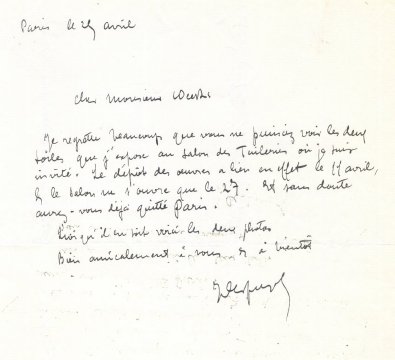 Paris le 25 avril
cher Monsieur
Je regrette beaucoup que vous ne puissiez voir les deux
toiles que j'expose au Salon des Tuileries où je suis
invité. Le dépôt des œuvres a lieu en effet le 17 avril,
& le salon ne s'ouvre que le 27. Et sans doute
aurez-vous déjà quitté Paris.
Quoiqu'il en soit voici les deux photos
Bien amicalement à vous & à bientôt